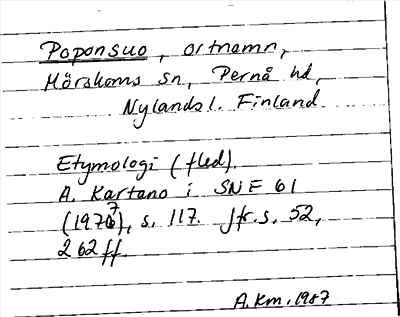 Poponsuo, ortnamn,
Mörskoms sn, Pernå hd,
Nylands l. Finland.
Etymologi (fled).
A. Kartano i SNF 61
(1977), s. 117. Jfr. s. 52,
262 ff.
A.Km. 1987